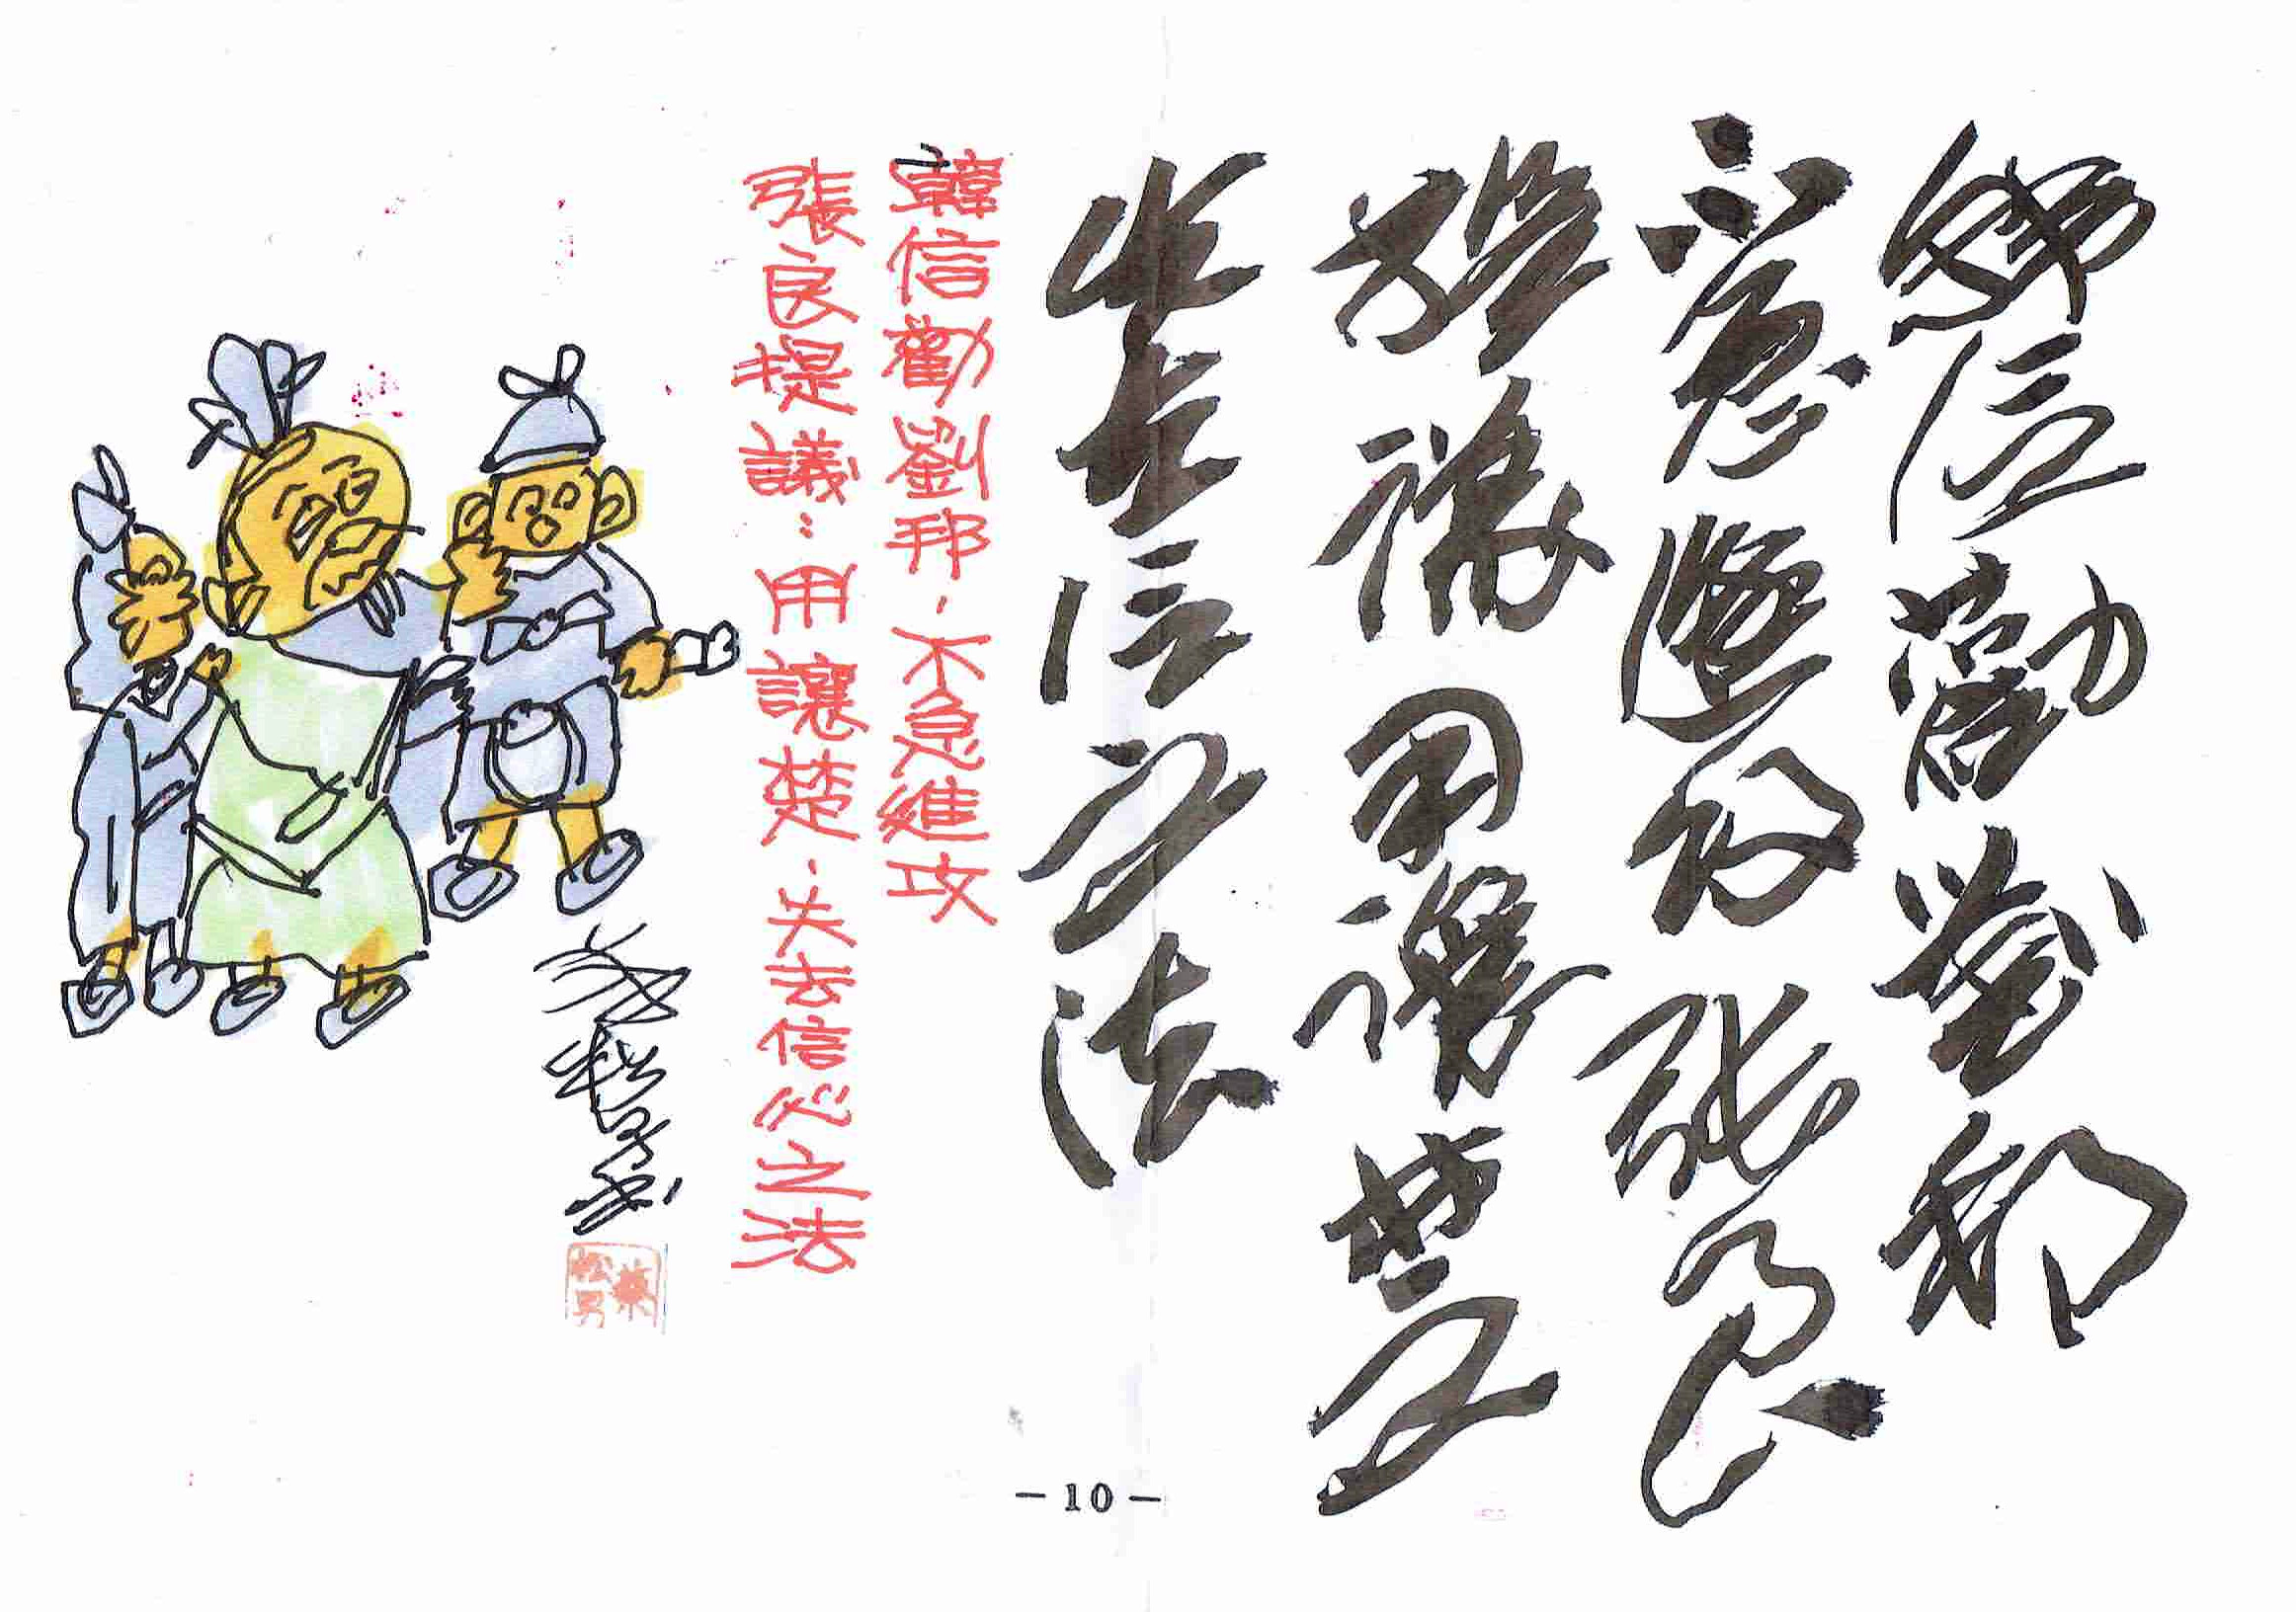 韓信勸劉邦
不急進攻張良
提議用讓楚
失去信之法
韓信勸劉邦，不急進攻
張良提議：用讓楚，失去信心之法
葉松男
－10－